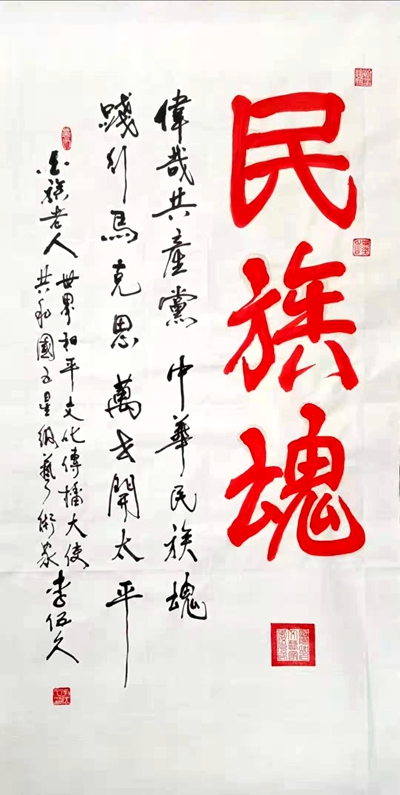 民族魂
偉哉共產黨 中華民族魂
踐行馬克思 萬世開太平
世界和平文化傳播大使
共和國五星級藝術家
李伍久